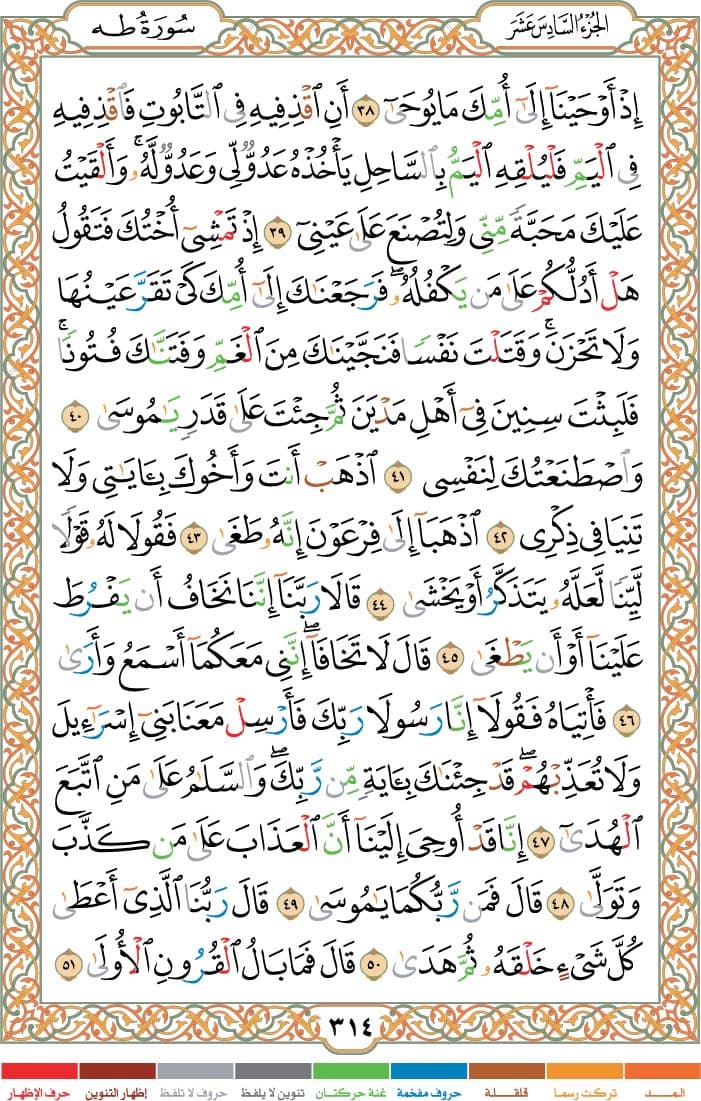 الجُزءُ السَّادِسَ عَشَرَ
سُورَةُ طه
إِذۡ أَوۡحَيۡنَآ إِلَىٰٓ أُمِّكَ مَا يُوحَىٰٓ ٣٨ أَنِ ٱقۡذِفِيهِ فِي ٱلتَّابُوتِ فَٱقۡذِفِيهِ
فِي ٱلۡيَمِّ فَلۡيُلۡقِهِ ٱلۡيَمُّ بِٱلسَّاحِلِ يَأۡخُذۡهُ عَدُوّٞ لِّي وَعَدُوّٞ لَّهُۥۚ وَأَلۡقَيۡتُ
عَلَيۡكَ مَحَبَّةٗ مِّنِّي وَلِتُصۡنَعَ عَلَىٰ عَيۡنِيٓ ٣٩ إِذۡ تَمۡشِيٓ أُخۡتُكَ فَتَقُولُ
هَلۡ أَدُلُّكُمۡ عَلَىٰ مَن يَكۡفُلُهُۥۖ فَرَجَعۡنَٰكَ إِلَىٰٓ أُمِّكَ كَيۡ تَقَرَّ عَيۡنُهَا
وَلَا تَحۡزَنَۚ وَقَتَلۡتَ نَفۡسٗا فَنَجَّيۡنَٰكَ مِنَ ٱلۡغَمِّ وَفَتَنَّٰكَ فُتُونٗاۚ
فَلَبِثۡتَ سِنِينَ فِيٓ أَهۡلِ مَدۡيَنَ ثُمَّ جِئۡتَ عَلَىٰ قَدَرٖ يَٰمُوسَىٰ ٤٠
وَٱصۡطَنَعۡتُكَ لِنَفۡسِي ٤١ ٱذۡهَبۡ أَنتَ وَأَخُوكَ بِـَٔايَٰتِي وَلَا
تَنِيَا فِي ذِكۡرِي ٤٢ ٱذۡهَبَآ إِلَىٰ فِرۡعَوۡنَ إِنَّهُۥ طَغَىٰ ٤٣ فَقُولَا لَهُۥ قَوۡلٗا
لَّيِّنٗا لَّعَلَّهُۥ يَتَذَكَّرُ أَوۡ يَخۡشَىٰ ٤٤ قَالَا رَبَّنَآ إِنَّنَا نَخَافُ أَن يَفۡرُطَ
عَلَيۡنَآ أَوۡ أَن يَطۡغَىٰ ٤٥ قَالَ لَا تَخَافَآۖ إِنَّنِي مَعَكُمَآ أَسۡمَعُ وَأَرَىٰ
٤٦ فَأۡتِيَاهُ فَقُولَآ إِنَّا رَسُولَا رَبِّكَ فَأَرۡسِلۡ مَعَنَا بَنِيٓ إِسۡرَٰٓءِيلَ
وَلَا تُعَذِّبۡهُمۡۖ قَدۡ جِئۡنَٰكَ بِـَٔايَةٖ مِّن رَّبِّكَۖ وَٱلسَّلَٰمُ عَلَىٰ مَنِ ٱتَّبَعَ
ٱلۡهُدَىٰٓ ٤٧ إِنَّا قَدۡ أُوحِيَ إِلَيۡنَآ أَنَّ ٱلۡعَذَابَ عَلَىٰ مَن كَذَّبَ
وَتَوَلَّىٰ ٤٨ قَالَ فَمَن رَّبُّكُمَا يَٰمُوسَىٰ ٤٩ قَالَ رَبُّنَا ٱلَّذِيٓ أَعۡطَىٰ
كُلَّ شَيۡءٍ خَلۡقَهُۥ ثُمَّ هَدَىٰ ٥٠ قَالَ فَمَا بَالُ ٱلۡقُرُونِ ٱلۡأُولَىٰ ٥١
٣١٤
المـــد تركت رسما قلقلة حروف مفخمة غنة حركتان تنوين لا يلفظ حروف لا تلفظ إظهار التنوين حرف الإظهار